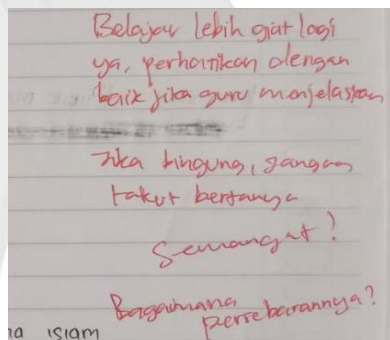 Belajar lebih giat lagi
ya, perhatikan dengan
baik jika guru menjelaskan
Jika bingung, jangan
takut bertanya
Semangat!
Bagaimana
persebarannya?
na islam